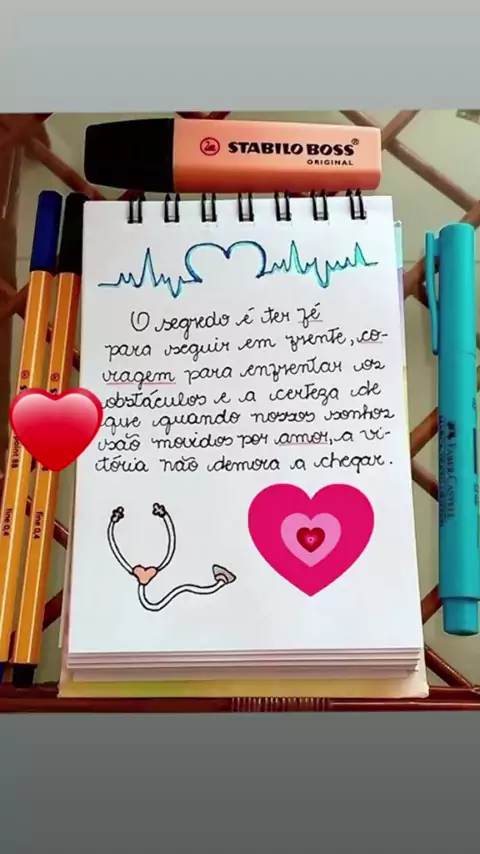 STABILO BOSS®
ORIGINAL
O segredo é ter fé
para seguir em frente, co-
ragem para enfrentar os
obstáculos e a certeza de
que quando nossos sonhos
são movidos por amor, a vi-
tória não demora a chegar.
point 88
fine 0,4
fine 0,4
FABER-CASTELL